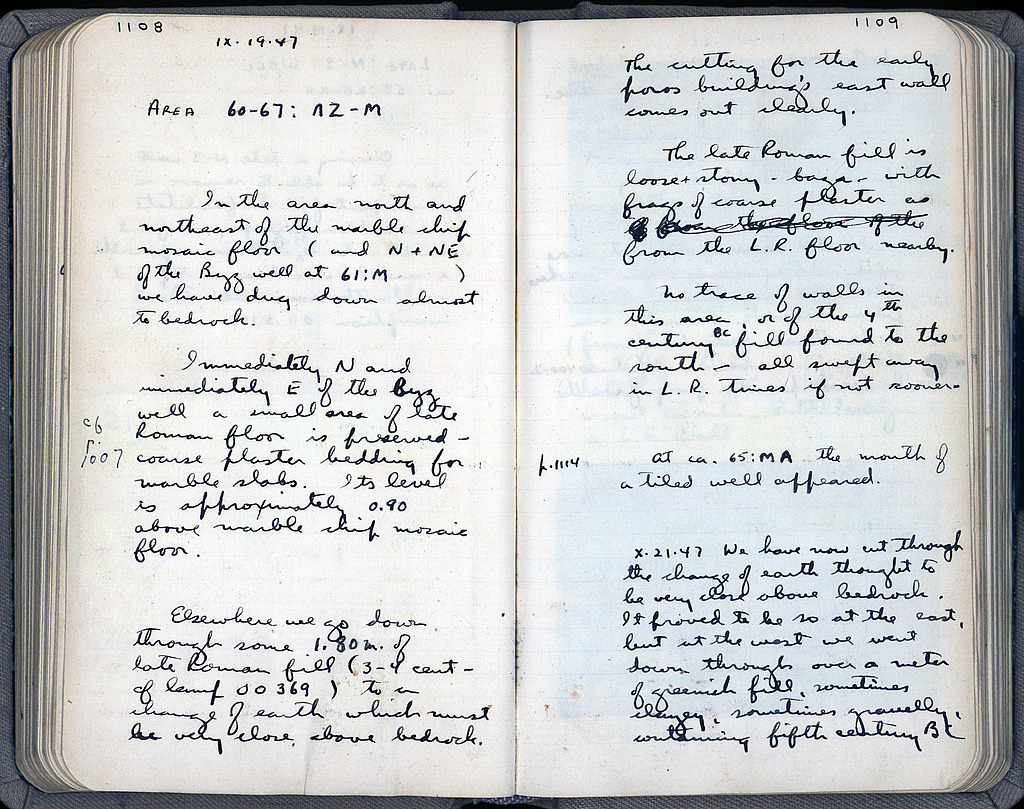 1108
IX.19.47
AREA 60-67: ΛZ-M
In the area north and
northeast of the marble chip
mosaic floor (and N + NE
of the Byz well at 61:M )
we have dug down almost
to bedrock.
Immediately N and
immediately E of the Byz
well a small area of late
Roman floor is preserved -
cf
p.1007
coarse plaster bedding for
marble slabs. Its level
is approximately 0.90
above marble chip mosaic
floor.
Elsewhere we go down
through some 1.80 m. of
late Roman fill (3-4 cent -
cf lamp OO 369 ) to a
change of earth which must
be very close above bedrock.
1109
The cutting for the early
poros building's east wall
comes out clearly.
The late Roman fill is
loose + stony - bags - with
frags of coarse plaster as
from the floor of the
from the L.R. floor nearby.
No trace of walls in
this area, or of the 4th
century BC fill found to the
south - all swept away
in L.R. times if not sooner.
p.1114
At ca. 65:MA the mouth of
a tiled well appeared.
X.21.47 We have now cut through
the change of earth thought to
be very close above bedrock.
It proved to be so at the east,
but at the west we went
down through over a meter
of greenish fill, sometimes
clayey, sometimes gravelly,
containing fifth century BC